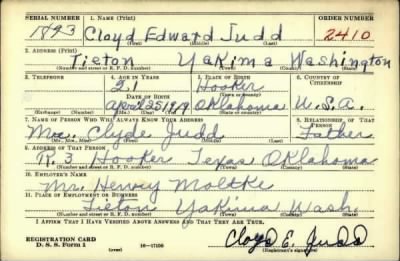 SERIAL NUMBER 1. NAME (Print) ORDER NUMBER
1893 Cloyd Edward Judd 2410
(First) (Middle) (Last)
2. ADDRESS (Print)
Tieton Yakima Washington
(Number and street or R. F. D. number) (Town) (County) (State)
3. TELEPHONE 4. AGE IN YEARS 5. PLACE OF BIRTH 6. COUNTRY OF CITIZENSHIP
21 Hooker
DATE OF BIRTH (Town or county)
April 25 1919 Oklahoma U.S.A.
(Exchange) (Number) (Mo.) (Day) (Yr.) (State or country)
7. NAME OF PERSON WHO WILL ALWAYS KNOW YOUR ADDRESS 8. RELATIONSHIP OF THAT PERSON
Clyde Judd Father
(Mr., Mrs., Miss) (First) (Middle) (Last)
9. ADDRESS OF THAT PERSON
R. 3 Hooker Texas Oklahoma
(Number and street or R. F. D. number) (Town) (County) (State)
10. EMPLOYER'S NAME
Mr. Henry Moltke
11. PLACE OF EMPLOYMENT OR BUSINESS
Tieton Yakima Wash.
(Number and street or R. F. D. number) (Town) (County) (State)
I AFFIRM THAT I HAVE VERIFIED ABOVE ANSWERS AND THAT THEY ARE TRUE.
REGISTRATION CARD
D. S. S. Form 1 16-17105 Cloyd E. Judd
(Registrant's signature)